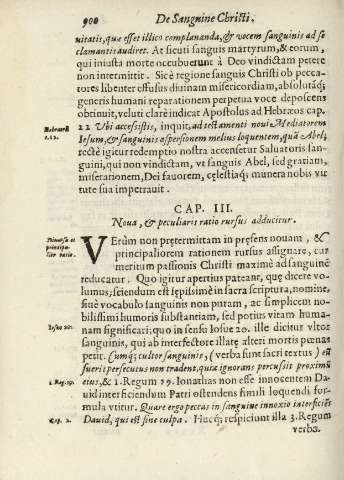 900 De Sanguine Christi.
uitatis, quæ esset illico complananda, & vocem sanguinis ad se
clamantis audiret. At sicuti sanguis martyrum, & eorum,
qui iniusta morte occubuerunt à Deo vindictam petere
non intermittit. Sic è regione sanguis Christi ob pecca-
tores libenter effusus diuinam misericordiam, absolutāq;
generis humani reparationem perpetua voce deposcens
obtinuit, veluti clarè indicat Apostolus ad Hebræos cap.
Hebræor.
c. 12.
12 Vbi accessistis, inquit, ad testamenti noui Mediatorem
Iesum, & sanguinis aspersionem melius loquentem, quā Abel;
rectè igitur redemptio nostra accensetur Saluatoris san-
guini, qui non vindictam, vt sanguis Abel, sed gratiam,
miserationem, Dei fauorem, cęlestiaq; munera nobis vir
tute sua impetrauit.
CAP. III.
Noua, & peculiaris ratio rursus adducitur.
Primaria et
principa-
lior ratio.
VErùm non prętermittam in pręsens nouam, &
principaliorem rationem rursus assignare, cur
meritum passionis Christi maximè ad sanguinē
reducatur. Quò igitur apertius pateant, quę dicere vo-
lumus; sciendum est sępissimè in sacra scriptura, nomine,
siue vocabulo sanguinis non puram, ac simplicem no-
bilissimi humoris substantiam, sed potius vitam huma-
Iosue 20.
nam significari; quo in sensu Iosue 20. ille dicitur vltor
sanguinis, qui ab interfectore illatę alteri mortis pœnas
petit. Cumq; vltor sanguinis, (verba sunt sacri textus) eū
fuerit persecutus non tradent, quia ignorans percussit proximū
1. Reg. 19.
eius, & 1. Regum 19. Ionathas non esse innocentem Da-
uid interficiendum Patri ostendens simili loquendi for-
mula vtitur. Quare ergo peccas in sanguine innoxio interficiēs
Cap. 2.
Dauid, qui est sine culpa. Hucq; respiciunt illa 3. Regum
verba.